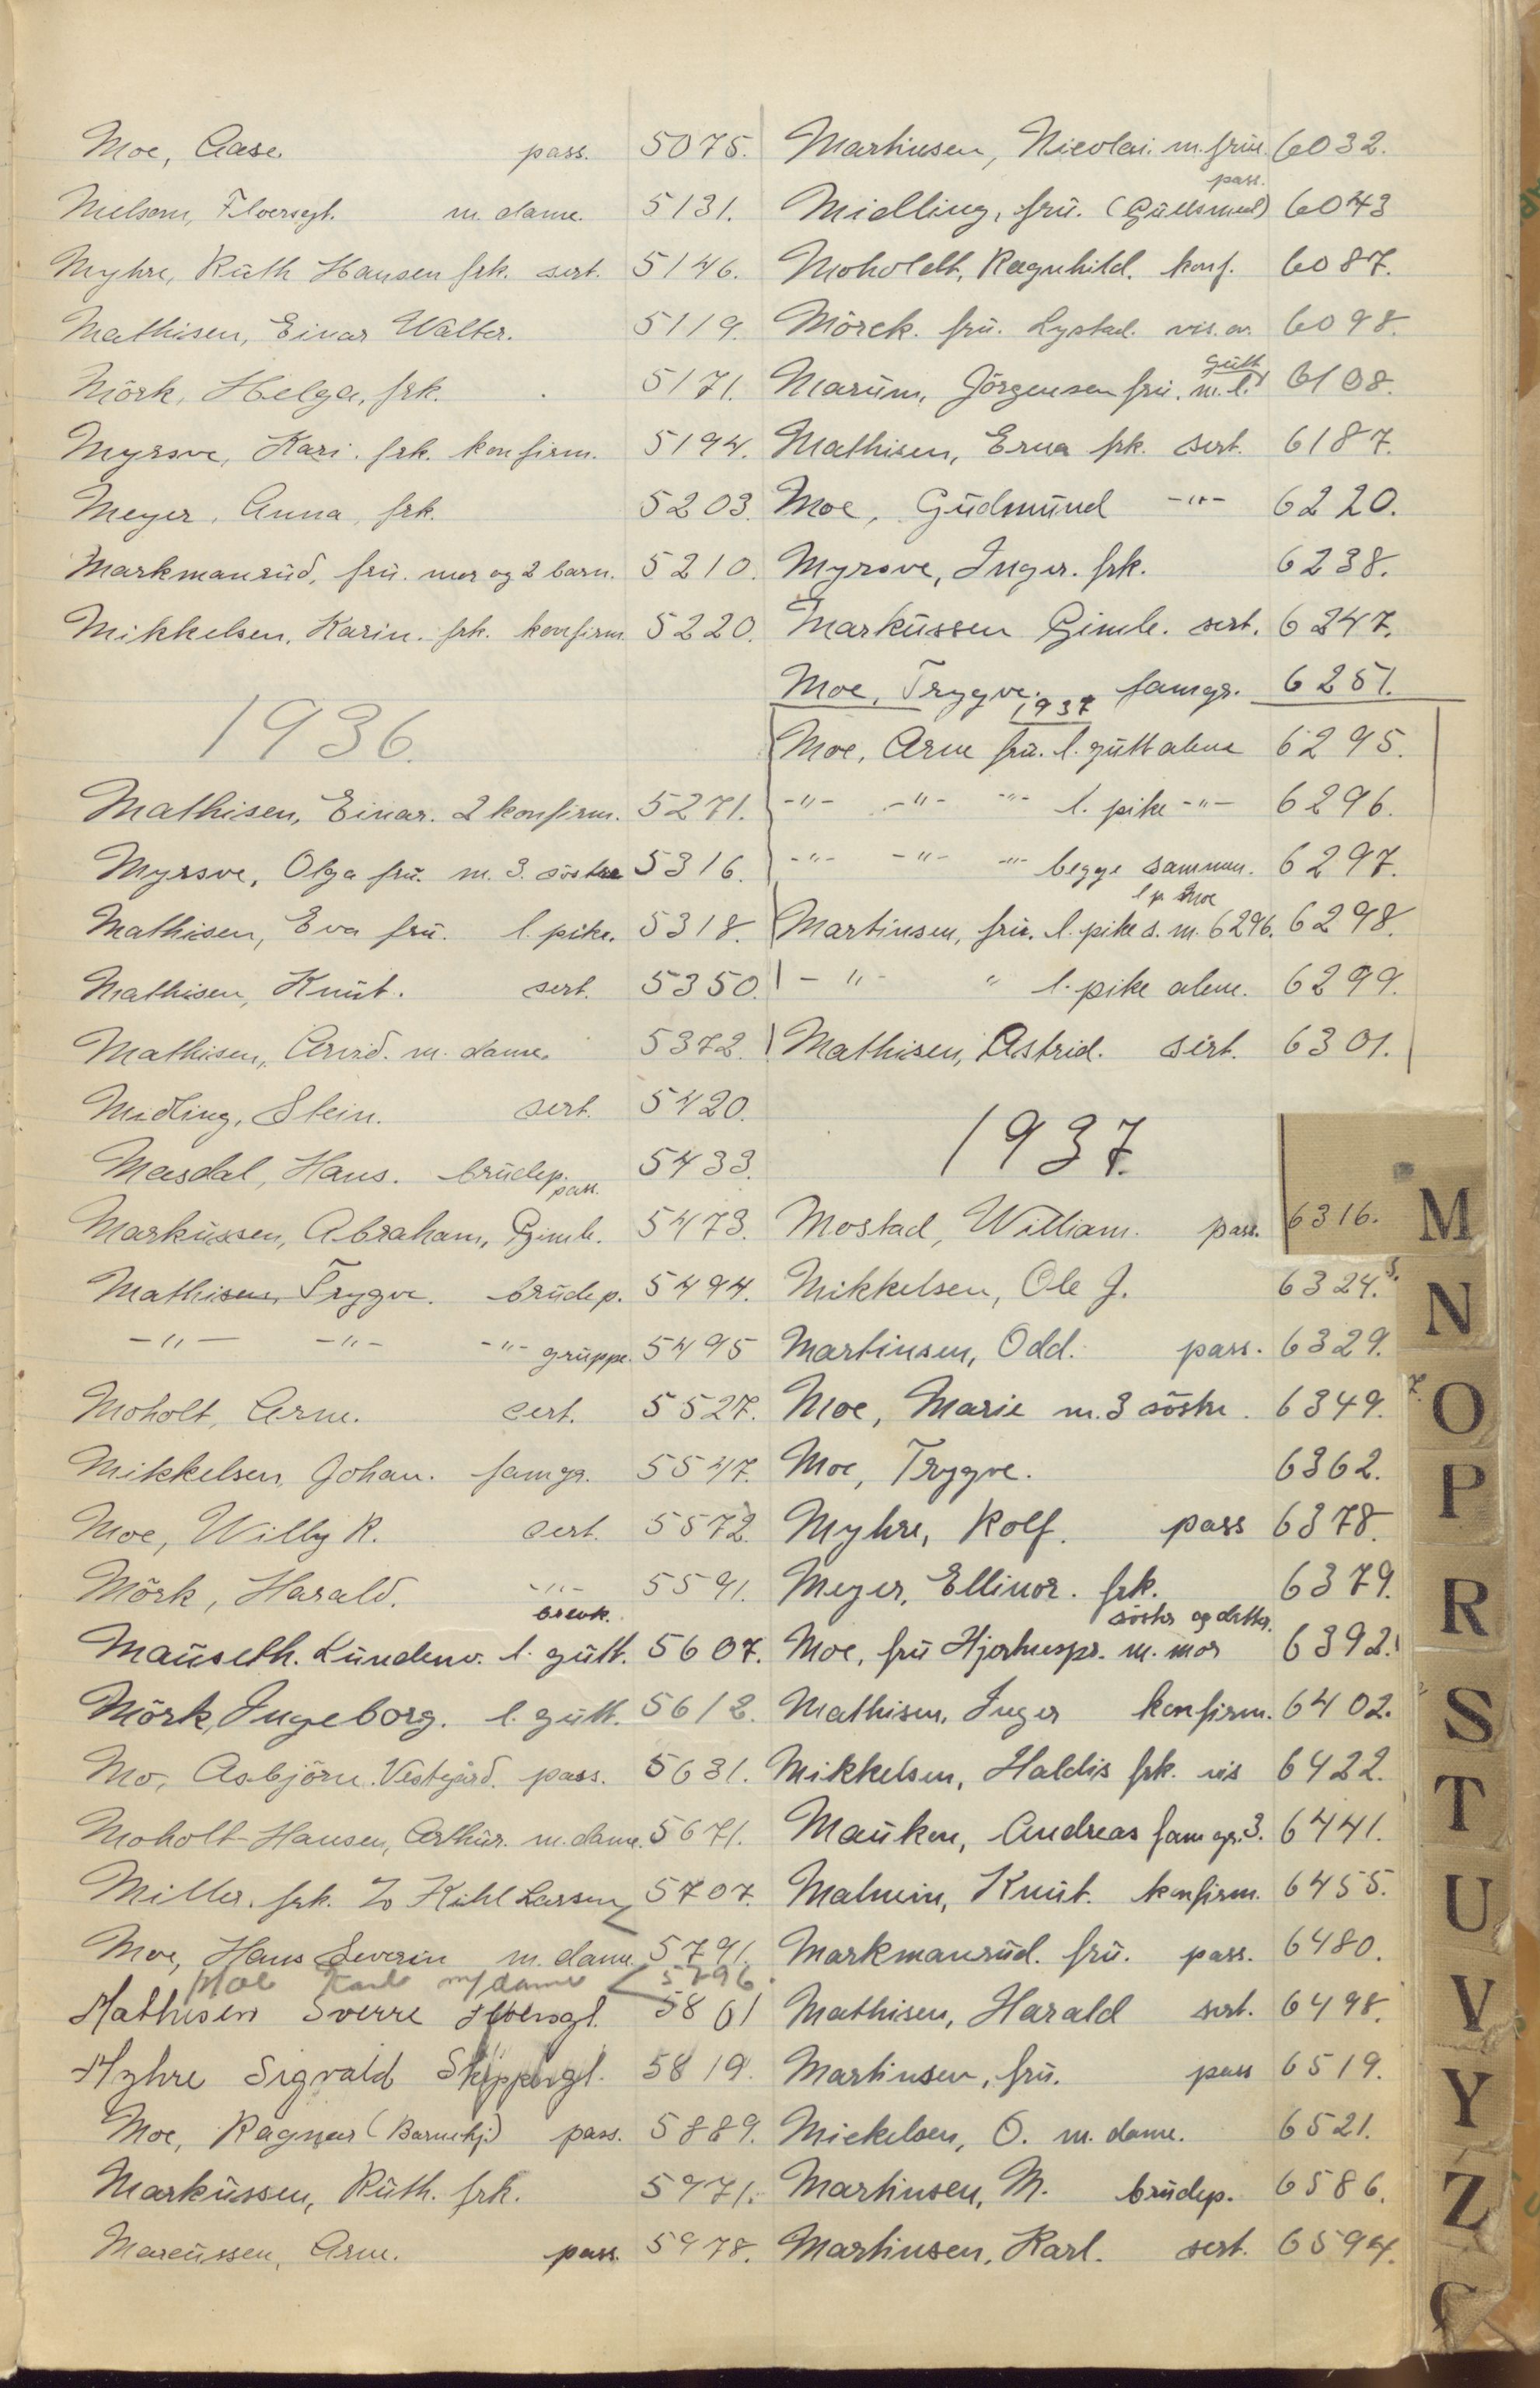 Moe, Aase. pass. 5075.
Nielsen, Floersgt. m. dame. 5131.
Myhre, Ruth Hansen frk. sert. 5146.
Mathisen, Einar Walter. 5119.
Mörk, Helga, frk. 5171.
Myrsve, Kari. frk. konfirm. 5194.
Meyer, Anna, frk. 5203.
Markmanrud, fru. mor og 2 barn. 5210.
Mikkelsen, Karin. frk. konfirm. 5220.
1936.
Mathisen, Einar. 2 konfirm. 5271.
Myrsve, Olga fru. m. 3. söstre 5316.
Mathisen, Eva fru. l. pike. 5318.
Mathisen, Knut. sert. 5350.
Mathisen, Arvid. m. dame. 5372.
Midling, Stein. sert. 5420.
Masdal, Hans. brudep. 5433.
pass.
Markussen, Abraham, Gimle. 5473.
Mathisen, Trygve. brudep. 5494.
-"- -"- -"- gruppe. 5495
Moholt, Arne. sert. 5527.
Mikkelsen, Johan. famgr. 5547.
Moe, Willy R. sert. 5572.
Mörk, Harald. -"- 5591.
brevk.
Mauseth. Lundenv. l. gutt. 5607.
Mörk, Ingeborg. l. gutt. 5612.
Mo, Asbjörn. Vestegård. pass. 5631.
Moholt-Hansen, Arthur. m. dame. 5671.
Miller, frk. Kihl Larsen 5707.
Moe, Hans Severin m. dame. 5791.
Moe Karl m/dame 5796.
Mathisen Sverre 5801
Myhre Sigvald Skippergt. 5819.
Moe, Ragnar (Barnehj.) pass. 5889.
Markussen, Ruth. frk. 5971.
Marcussen, Arne. pass. 5978.
Martinsen, Nicolai. m. frue. 6032.
pass.
Midling, fru. (Gullsmed) 6043
Moholdt, Ragnhild. konf. 6087.
Mörck. fru. Lystad. vis. av. 6098.
gutt
Marum, Jörgensen fru. m. l. 6108.
Mathisen, Erna frk. sert. 6187.
Moe, Gudmund -"- 6220.
Myrsve, Inger. frk. 6238.
Markussen Gimle. sert. 6247.
Moe, Trygve. famgr. 6251.
1937
Moe, Arne fru. l. gutt alene 6295.
-"- -"- -"- l. pike -"- 6296.
-"- -"- -"- begge sammen. 6297.
l p Moe
Martinsen, fru. l. pike s. m. 6296. 6298.
-"- " l. pike alene. 6299.
Mathisen, Astrid. sert. 6301.
1937.
Mostad, William. pass. 6316.
Mikkelsen, Ole J. 6324.
Martinsen, Odd. pass. 6329.
Moe, Marie m. 3 söstre. 6349.
Moe, Trygve. 6362.
Myhre, Rolf. pass 6378.
Meyer, Ellinor. frk. 6379.
söster og datter.
Moe, fru Hjortnespr. m. mor 6392.
Mathisen, Inger konfirm. 6402.
Mikkelsen, Haldis frk. vis 6422.
Mauken, Andreas fam gr. 3. 6441.
Malmin, Knut. konfirm. 6455.
Markmanrud. fru. pass. 6480.
Mathisen, Harald sert. 6498.
Martinsen, fru. pass 6519.
Mickelsen, O. m. dame. 6521.
Martinsen, M. brudep. 6586.
Martinsen, Karl. sert. 6594.
M
N
O
P
R
S
T
U
V
Y
Z